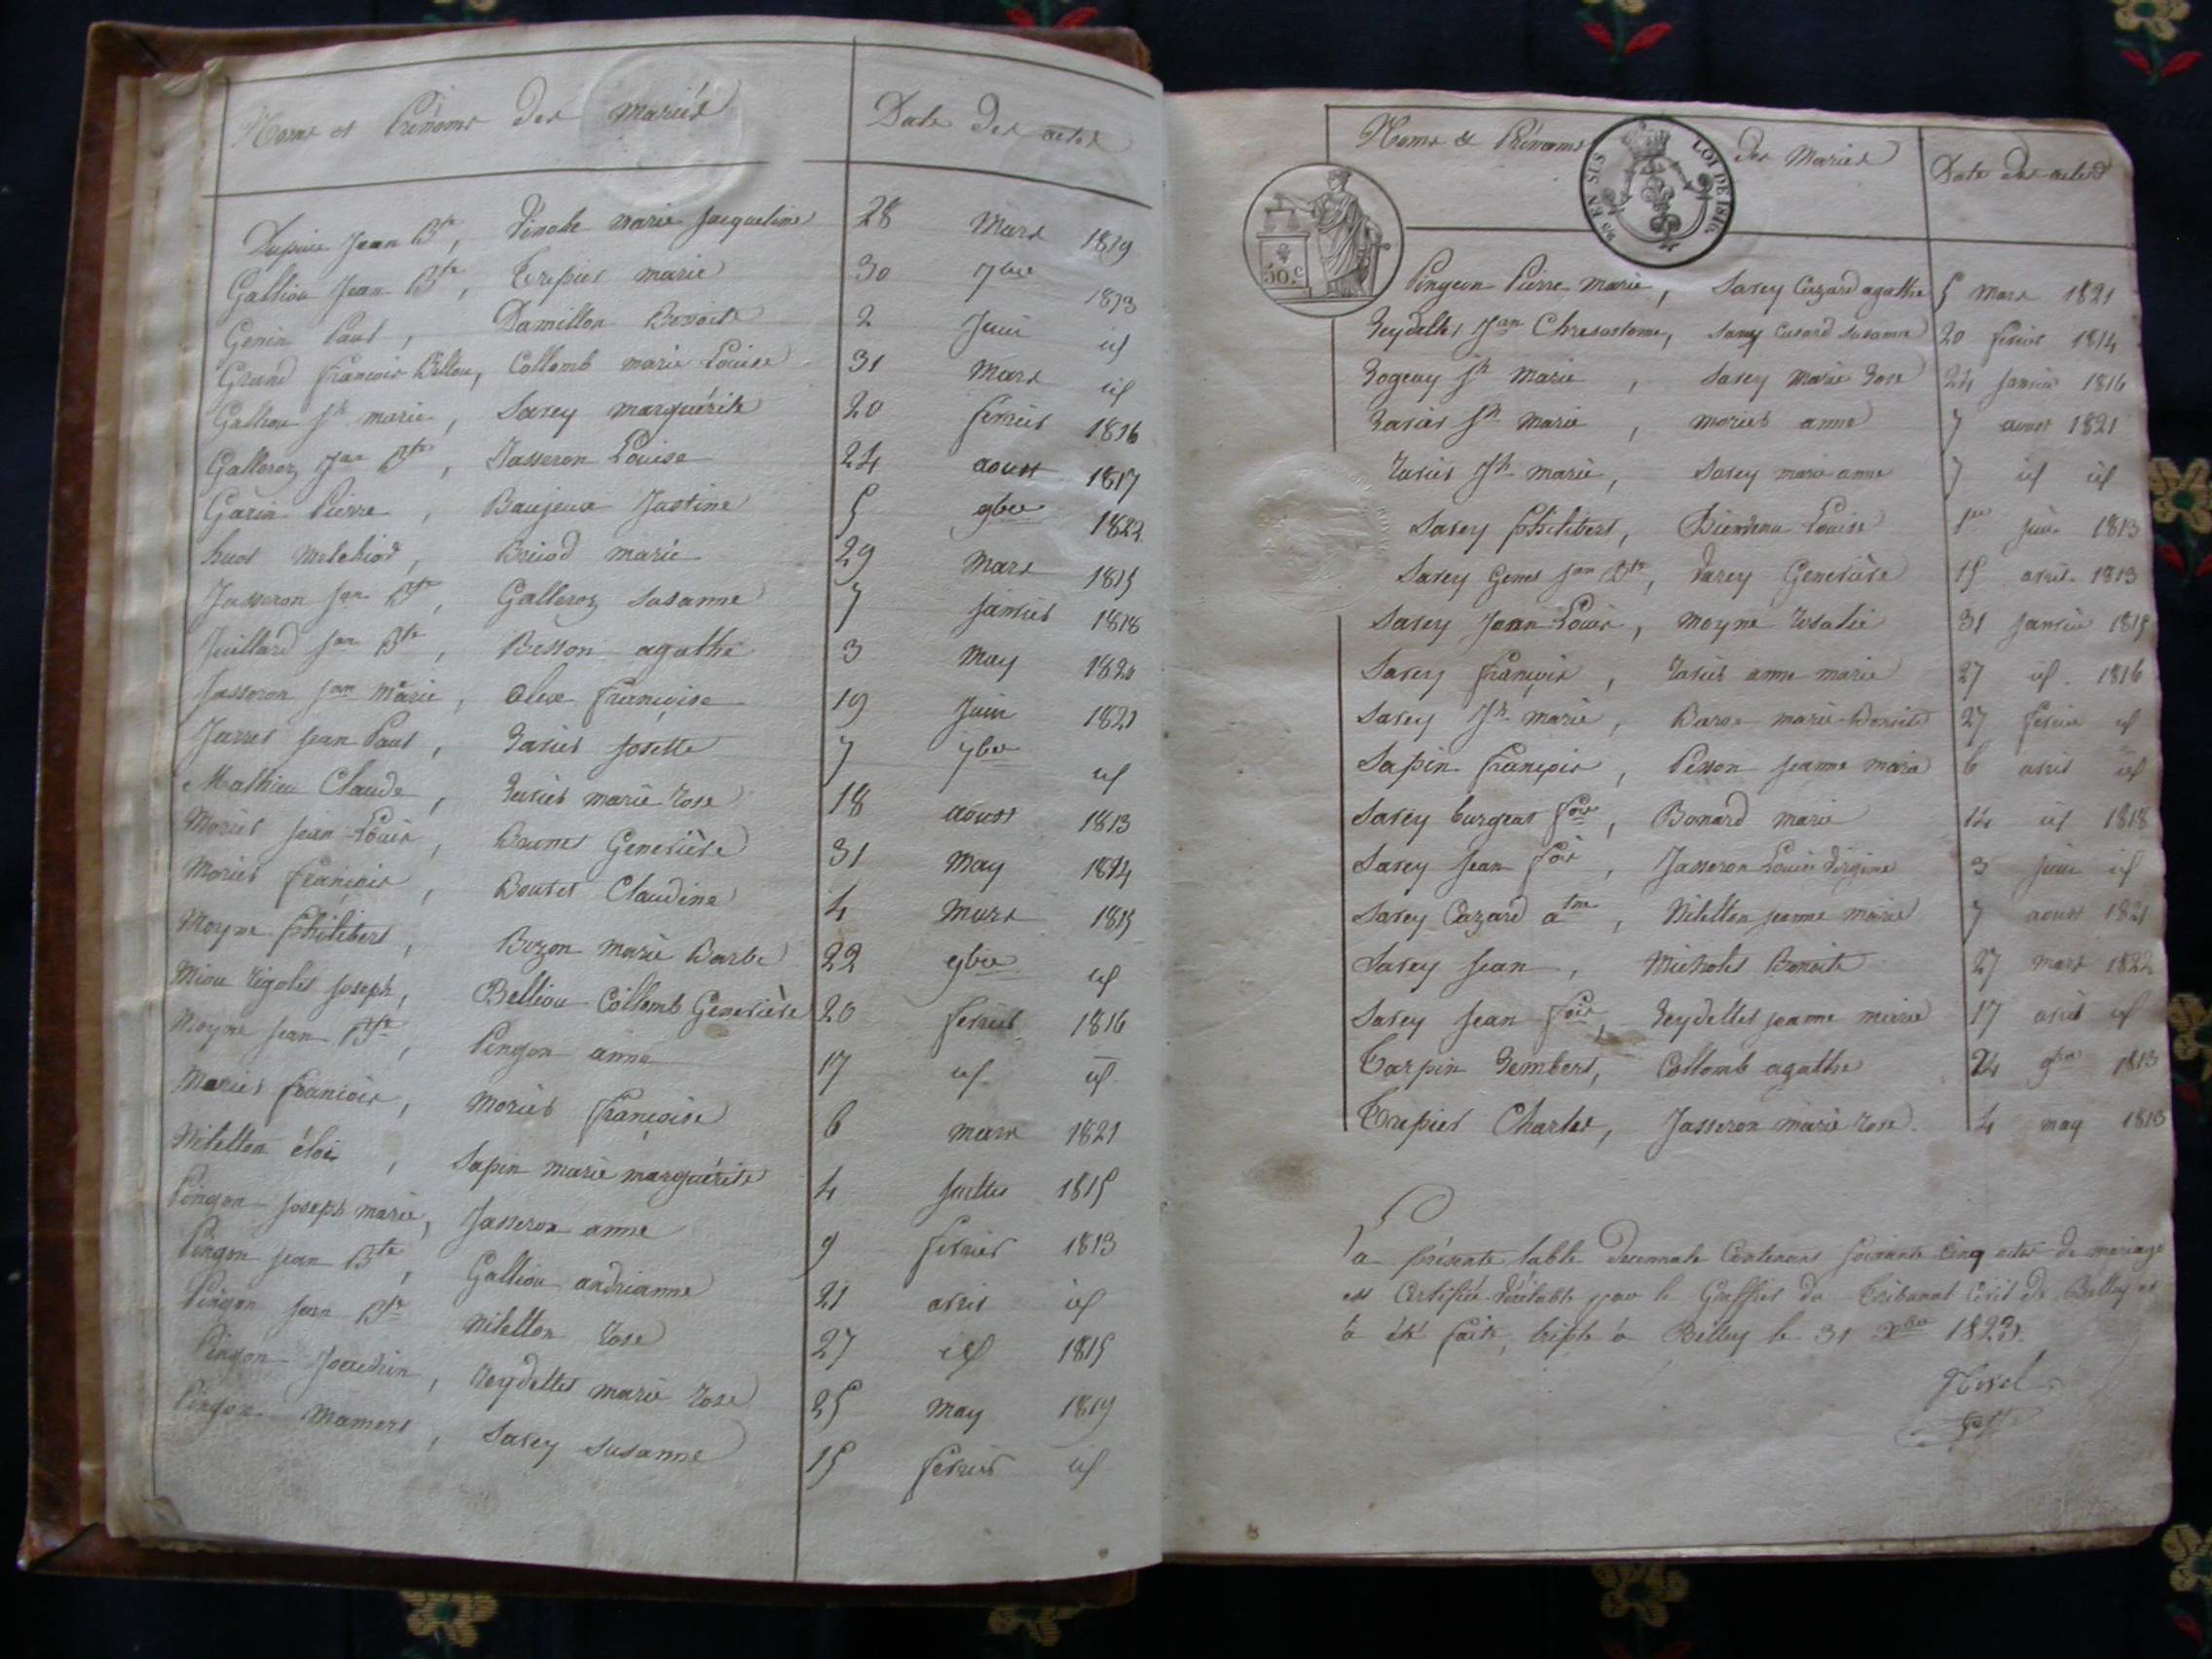 Noms et Prénoms des mariés Date des actes
Dupuis Jean Bte, marie Jacqueline 28 Mars 1819
Galliou Jean Bte, Trepier marie 30 7bre 1813
Genin Paul, Damillon Benoite 2 Juin id
Grand françois Billou, Collomb marie Louise 31 Mars id
Galliou Jh marie, Savey marguérite 20 fevrier 1816
Galleroz Jan Bte, Jasseron Louise 24 aoust 1817
Garin Pierre, Baujeux Justine 5 9bre 1822
huot melchiod, marie 29 Mars 1815
Jasseron Jan Bte, Galleroz Susanne 7 janvier 1818
Juillard Jan Bte, Besson agathe 3 May 1820
Jasseron Jan Marie, françoise 19 Juin 1821
Jarret Jean Paul, Ravier Josette 7 7bre id
Mathieu Claude, Ravier marie rose 18 aoust 1813
Morier Jean Louis, Geneviève 31 May 1814
Morier françois, Bouvet Claudine 4 Mars 1815
Moyne philibert, Bozon marie Barbe 22 9bre id
Miou rigolet joseph, Belliou Collomb Geneviève 20 fevrier 1816
Moyne Jean Bte, Pingon anne 17 id id
Morier françois, Morier françoise 6 mars 1821
Niletton éloi, Sapin marie marguérite 4 juillet 1815
Pingon joseph marie, Jasseron anne 9 fevrier 1813
Pingon Jean Bte, Galliou andrianne 21 avril id
Pingon Jean Bte Niletton rose 27 id 1815
Pingon, Reydellet marie rose 25 may 1819
Pingon Mamert, Savey Susanne 15 fevrier id
Noms & Prénoms des Mariés Date des actes
EN SUS LOI DE 1816.
50.c
Pingeon Pierre Marie, Savey Cazard agathe 5 mars 1821
Reydellet Jan Chrisostome, Savey Cazard Susanne 20 fevrier 1814
Rogeay Jh Marie, Savey Marie Rose 24 janvier 1816
Ravier Jh Marie, morier anne 7 aoust 1821
Ravier Jh marie, Savey marie anne 7 id id
Savey philibert, Louise 1er juin 1813
Savey Genet Jan Bte, Varey Geneviève 15 avril 1813
Savey Jean Louis, Moyne rosalie 31 janvier 1815
Savey françois, Ravier anne marie 27 id. 1816
Savey Jh marie, marie Benoite 27 fevrier id
Sapin françois, Pesson jeanne marie 6 avril id
Savey burgeat fois, Bonard marie 14 id 1818
Savey Jean fois, Jasseron Louise Virginie 3 juin id
Savey Cazard atne, Niletton jeanne marie 7 aoust 1821
Savey jean, Micholet Benoite 27 mars 1822
Savey Jean fois, Reydellet jeanne marie 17 avril id
Tarpin Rembert, Collomb agathe 24 9bre 1813
Trepier Charles, Jasseron marie rose. 4 may 1813
La présente table Decennale Contenant soixante Cinq actes de mariage
est Certifiée Véritable par le Greffier du Tribunal Civil de Belley et
à été faite, triple à Belley le 31 Xbre 1823.